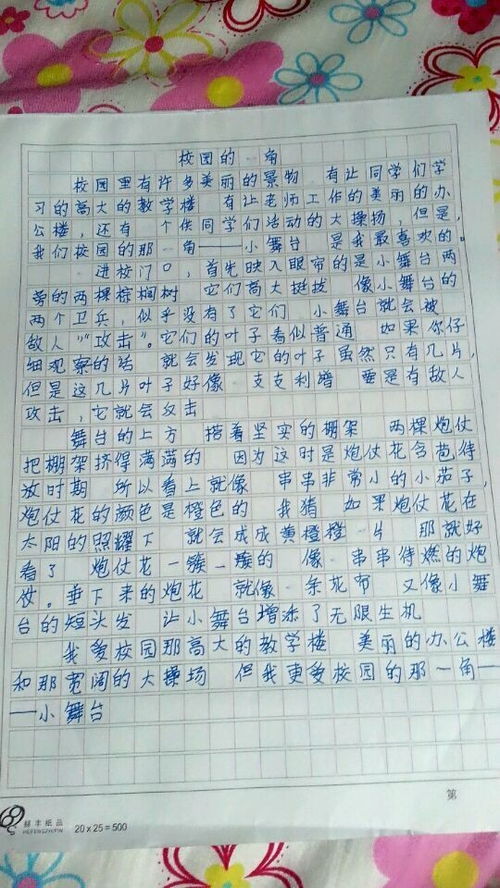 校园的一角
校园里有许多美丽的景物 有让同学们学
习的高大的教学楼 有让老师工作的美丽的办
公楼，还有一个供同学们活动的大操扬，但是，
我们校园的那一角——小舞台 是我最喜欢的。
一进校门口，首先映入眼帘的是小舞台两
旁的两棵棕榈树 它们高大挺拔 像小舞台的
两个卫兵，似乎没有了它们 小舞台就会被
敌人“攻击”。它们的叶子看似普通 如果你仔
细观察的话 就会发现它的叶子虽然只有几片，
但是这几片叶子好像一支支利增 要是有敌人
攻击，它就会攻击
舞台的上方 搭着坚实的棚架 两棵炮仗
把棚架挤得满满的 因为这时是炮仗花含苞待
放时期 所以看上就像一串串非常小的小茄子，
炮仗花的颜色是橙色的 我猜 如果炮仗花在
太阳的照耀下 就会成成黄橙橙一片 那就好
看了 炮仗花一簇一簇的 像一串串待燃的炮
仗。垂下来的炮花 就像一条花布 又像小舞
台的短头发 让小舞台增添了无限生机
我爱校园那高大的教学楼 美丽的办公楼
和那宽阔的大操场 但我更爱校园的那一角—
—小舞台
第
赫丰纸品
HEFENGZHIPIN
20 x 25 = 500